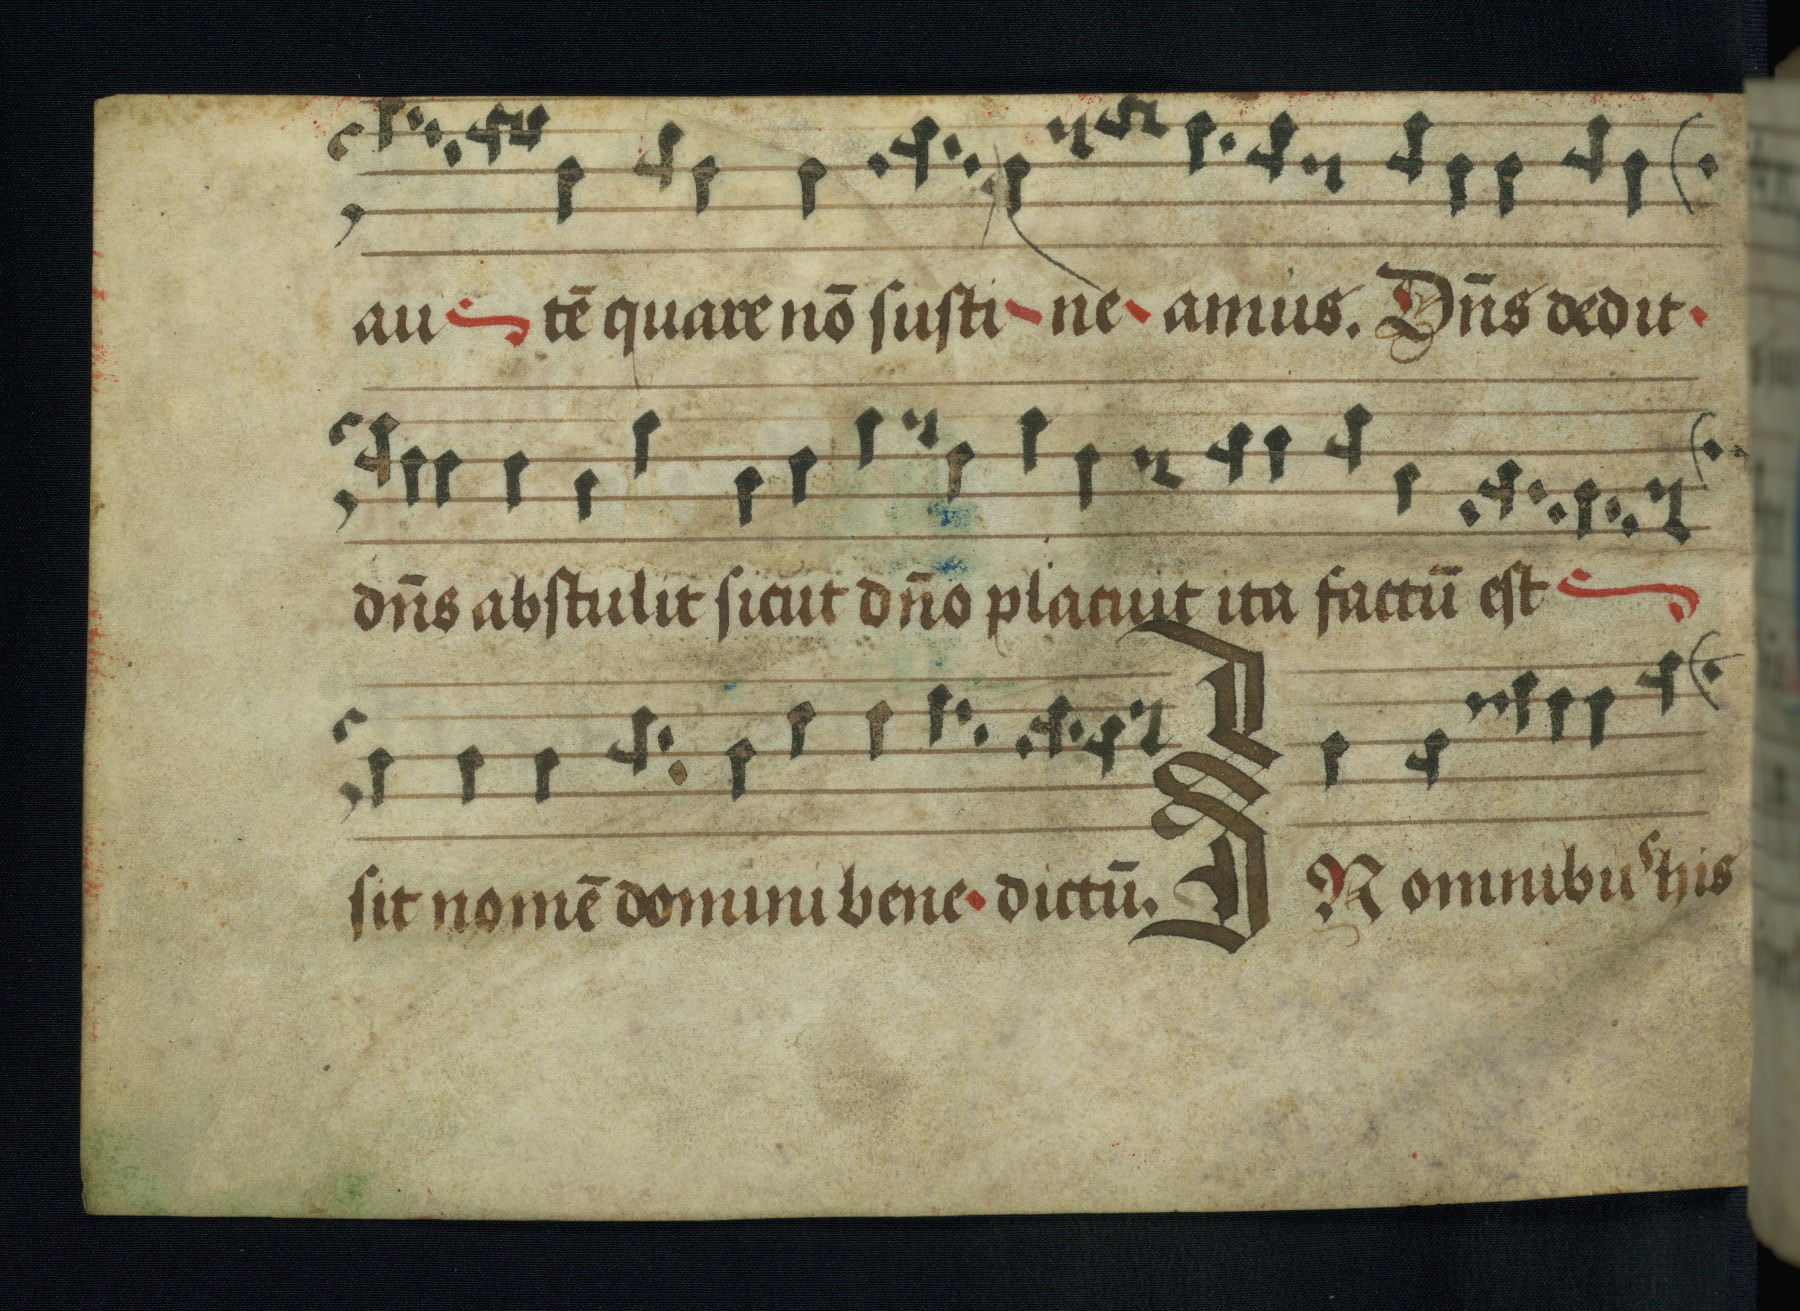 au tē quare nō ſuſti ne amus. Dn̄s dedit
dn̄s abſtulit ſicut dn̄o placuit ita factū eſt
ſit nomē domini bene dictū. I N omnibus his